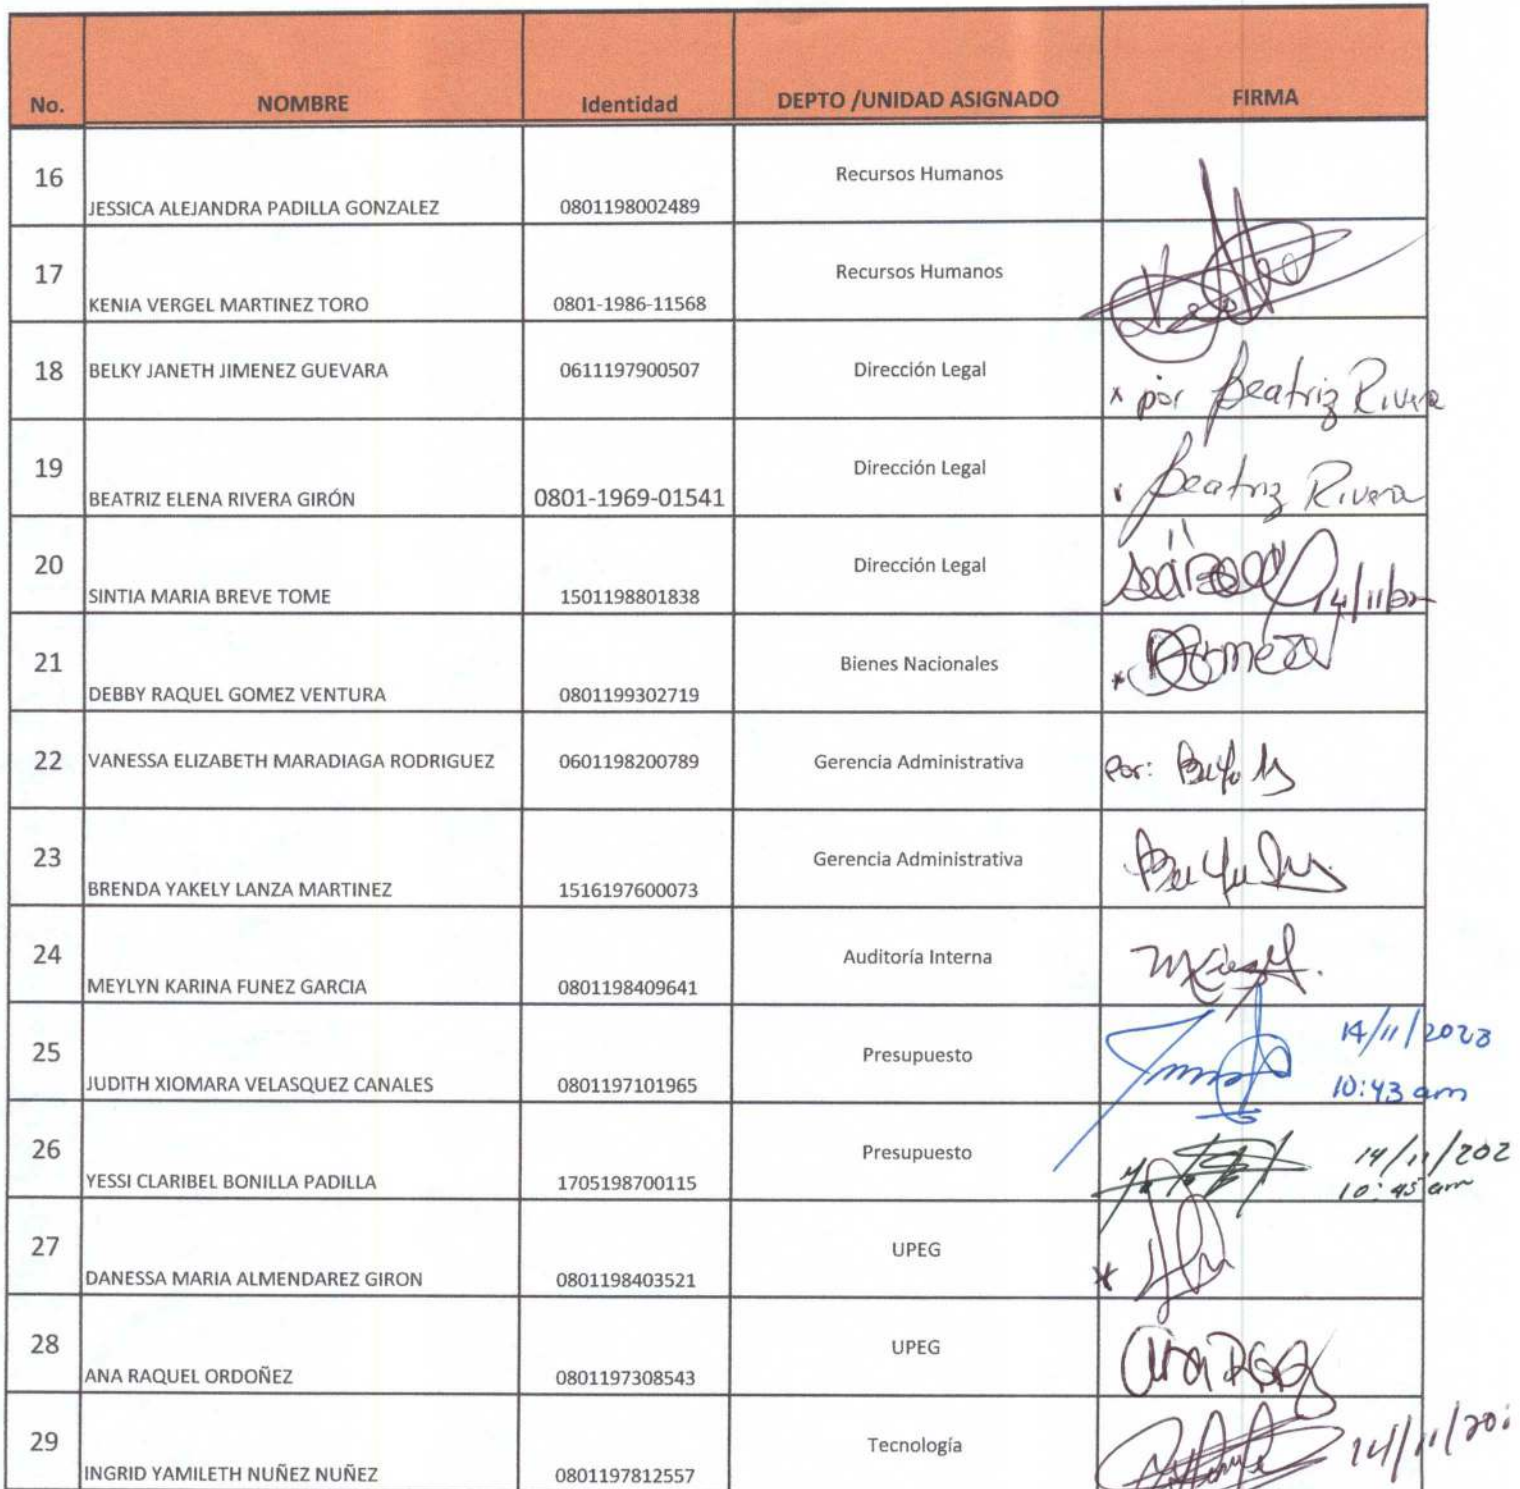 No. NOMBRE Identidad DEPTO /UNIDAD ASIGNADO FIRMA
16 JESSICA ALEJANDRA PADILLA GONZALEZ 0801198002489 Recursos Humanos
17 KENIA VERGEL MARTINEZ TORO 0801-1986-11568 Recursos Humanos
18 BELKY JANETH JIMENEZ GUEVARA 0611197900507 Dirección Legal x por Beatriz Rivera
19 BEATRIZ ELENA RIVERA GIRÓN 0801-1969-01541 Dirección Legal Beatriz Rivera
20 SINTIA MARIA BREVE TOME 1501198801838 Dirección Legal
21 DEBBY RAQUEL GOMEZ VENTURA 0801199302719 Bienes Nacionales
22 VANESSA ELIZABETH MARADIAGA RODRIGUEZ 0601198200789 Gerencia Administrativa Por:
23 BRENDA YAKELY LANZA MARTINEZ 1516197600073 Gerencia Administrativa
24 MEYLYN KARINA FUNEZ GARCIA 0801198409641 Auditoría Interna
25 JUDITH XIOMARA VELASQUEZ CANALES 0801197101965 Presupuesto 14/11/2023
10:43 am
26 YESSI CLARIBEL BONILLA PADILLA 1705198700115 Presupuesto 14/11/202
10:45 am
27 DANESSA MARIA ALMENDAREZ GIRON 0801198403521 UPEG
28 ANA RAQUEL ORDOÑEZ 0801197308543 UPEG
29 INGRID YAMILETH NUÑEZ NUÑEZ 0801197812557 Tecnología 14/11/20